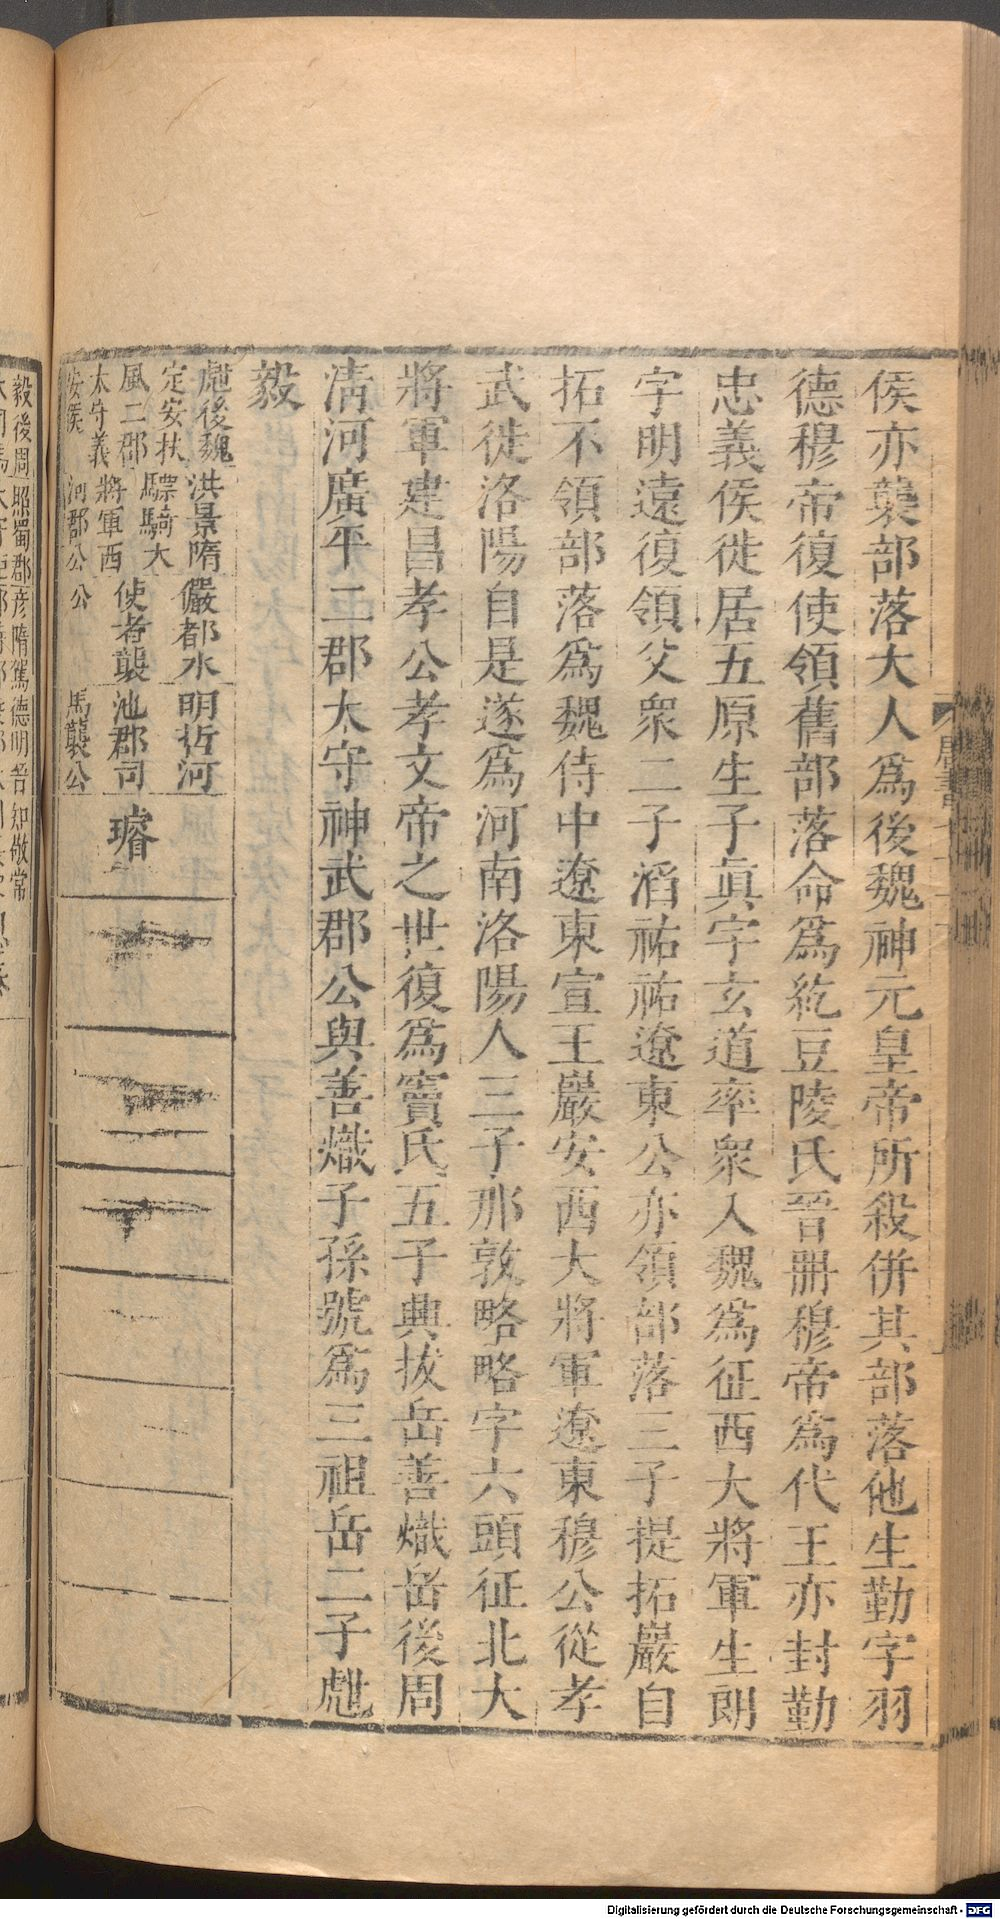 侯亦襲部落大人爲後魏神元皇帝所殺併其部落他生勤字羽
德穆帝復使領舊部落命爲紇豆陵氏晉冊穆帝爲代王亦封勤
忠義侯徙居五原生子眞字玄道率衆入魏爲征西大將軍生朗
字明遠復領父衆二子滔祐祐遼東公亦領部落三子提拓巖自
拓不領部落爲魏侍中遼東宣王巖安西大將軍遼東穆公從孝
武徙洛陽自是遂爲河南洛陽人三子那敦略略字六頭征北大
將軍建昌孝公孝文帝之世復爲竇氏五子典拔岳善熾岳後周
清河廣平二郡太守神武郡公與善熾子孫號爲三祖岳二子甝
毅
甝後魏
定安扶
風二郡
太守義
安侯
洪景隋
驃騎大
將軍西
河郡公
儼都水
使者襲
公
明哲河
池郡司
馬襲公
璿
毅後周
照蜀郡
彦隋駕
德明晉
知敬常
Digitalisierung gefördert durch die Deutsche Forschungsgemeinschaft - DFG